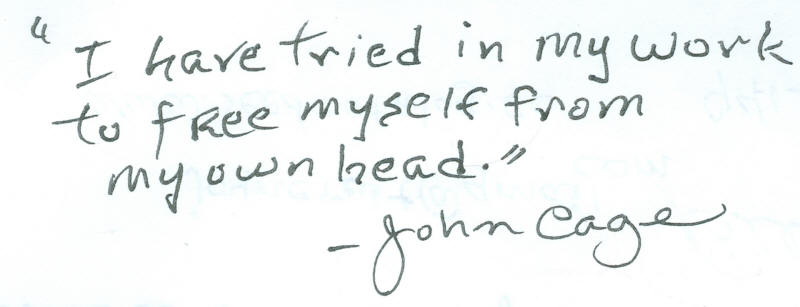 "I have tried in my work
to free myself from
my own head."
- John Cage